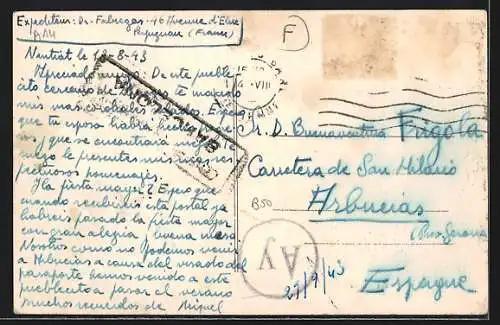 Expediteur: Dr Fabregas - 16 Avenue d'Elne
Perpignan (France)
Nautiat le 12-8-43
Apreciado amigo: De este pueble
cito cercano de
mis mas cordiales
que tu esposa habra
y que se encontrara
ruego le presentes mis res
petuosos homenajes.
Y la fiesta mayor? Espero que
cuando recibireis esta postal ya
habreis pasado la fiesta mayor
con gran alegria buena mesa
Nosotros como no podemos venir
a Arbucias a causa del visado del
pasaporte hemos venido a este
pueblecito a pasar el verano
muchos recuerdos de Miquel
F
VIII
BARCELONA
M. D. Buenaventura Frigola
Carretera de San Hilario
Arbucias
B50
(Prov. Gerona)
Espagne
Ay
27/9/43